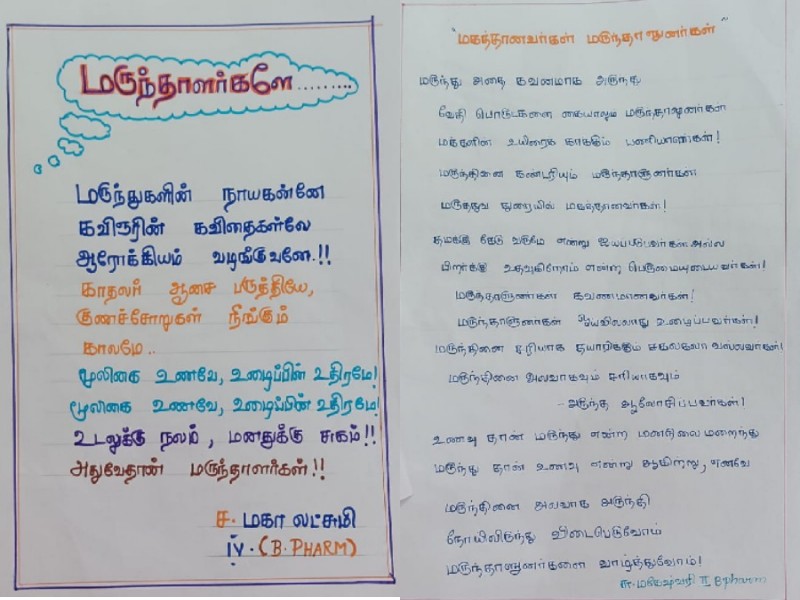 மருந்தாளர்களே.........
மருந்துகளின் நாயகன்னே
கவிஞரின் கவிதைகள்லே
ஆரோக்கியம் வடிங்குவனே.!!
காதலர் ஆசை மருத்தியே,
குணச்சோறுகள் நீங்கும்
காலமே..
மூலிகை உணவே, உடைப்பின் உதிரமே!
மூலிகை உணவே, உடைப்பின் உதிரமே!
உடலுக்கு நலம், மனதுக்கு சுகம்!!
அதுவேதான் மருந்தாளர்கள்!!
ச. மகா லட்சுமி
IV. (B. PHARM)
"மகத்தானவர்கள் மருந்தாளுனர்கள்"
மருந்து அதை கவனமாக அருந்து
வேதி பொருட்களை கையாளும் மருந்தாளுனர்கள்
மக்களின் உயிரைக் காக்கும் பணியாளர்கள்!
மருந்தினை கண்டறியும் மருந்தாளுனர்கள்
மருத்துவ துறையில் மகத்தானவர்கள்!
தமக்கு கேடு வருமே என்று ஐயப்படுபவர்கள் அல்ல
பிறர்க்கு உதவுகிறோம் என்ற பெருமையுடையவர்கள்!
மருந்தாளுனர்கள் கவணமானவர்கள்!
மருந்தாளுனர்கள் ஓய்வில்லாது உழைப்பவர்கள்!
மருந்தினை சரியாக தயாரிக்கும் சகலகலா வல்லவர்கள்!
மருந்தினை அளவாகவும் சரியாகவும்
- அருந்த ஆலோசிப்பவர்கள்!
உணவு தான் மருந்து என்ற மனநிலை மறைந்து
மருந்து தான் உணவு என்று ஆயிற்று, எனவே
மருந்தினை அளவாக அருந்தி
நோயிலிருந்து விடைபெறுவோம்
மருந்தாளுனர்களை வாழ்த்துவோம்!
மகேஷ்வரி II Bpharm